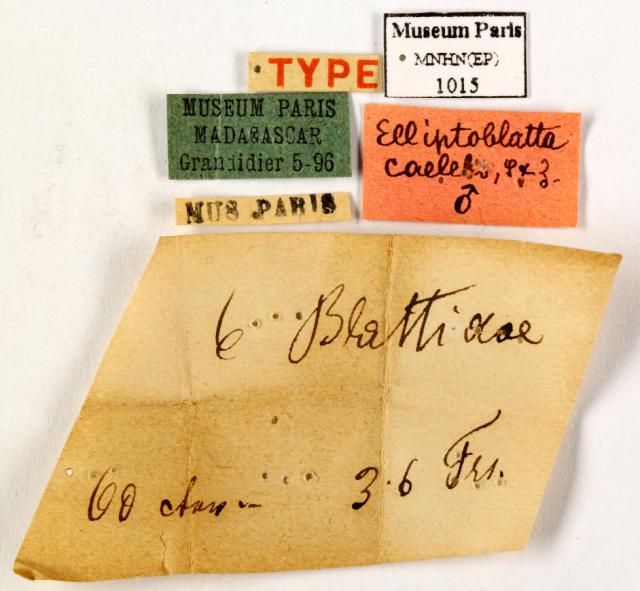 TYPE
Museum Paris
MNHN(EP)
1015
MUSEUM PARIS
MADAGASCAR
Grandidier 5-96
Elliptoblatta
♂
MUS PARIS
6 Blattidae
60 3.6 Frs.